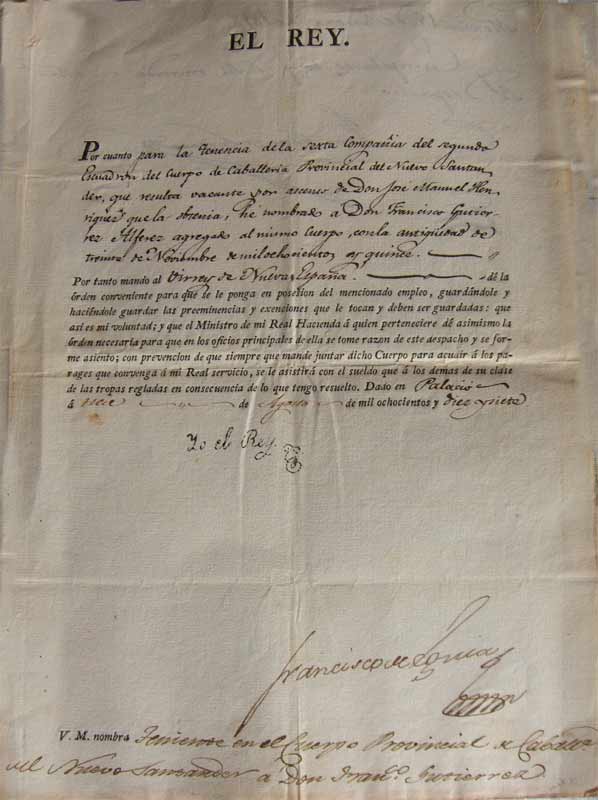 EL REY.
Por cuanto para la Tenencia de la sexta Compañia del segundo
Escuadron del Cuerpo de Caballeria Provincial del Nuevo Santan
der, que resulta vacante por ascenso de Don José Manuel Hen
riquez que la obtenia, he nombrado á Don Francisco Gutier
rez Alferez agregado al mismo Cuerpo, con la antigüedad de
treinta de Noviembre de mil ochocientos y quince.
Por tanto mando al Virrey de Nueva España. dé la
órden conveniente para que se le ponga en posesion del mencionado empleo, guardándole y
haciéndole guardar las preeminencias y exenciones que le tocan y deben ser guardadas: que
asi es mi voluntad; y que el Ministro de mi Real Hacienda á quien perteneciere dé asimismo la
órden necesaria para que en los oficios principales de ella se tome razon de este despacho y se for-
me asiento; con prevencion de que siempre que mande juntar dicho Cuerpo para acudir á los pa-
rages que convenga á mi Real servicio, se le asistirá con el sueldo que á los demas de su clase
de las tropas regladas en consecuencia de lo que tengo resuelto. Dado en Palacio
á de Agosto de mil ochocientos y diez y siete
Yo el Rey.
Francisco de Eguia
V. M. nombra Teniente en el Cuerpo Provincial de Caballa.
del Nuevo Santander a Don Franco. Gutierrez